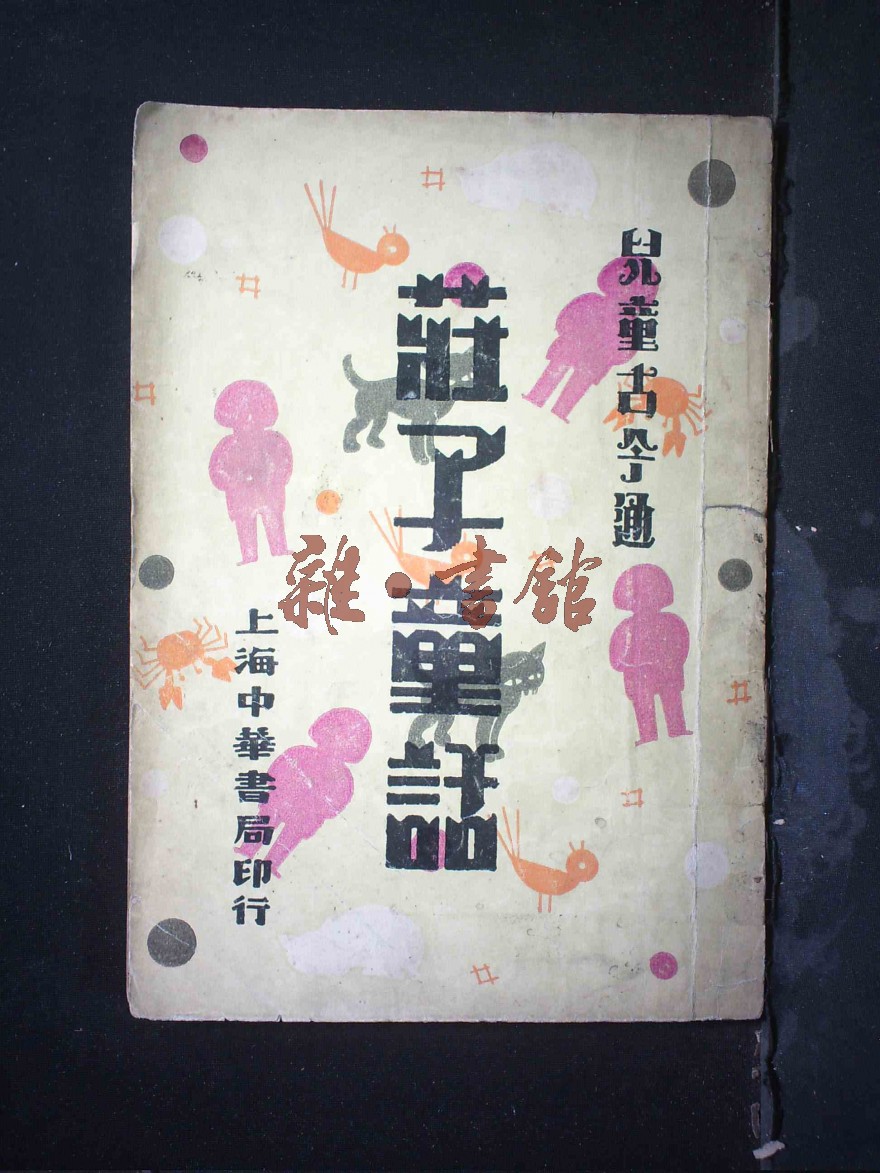 兒童古今通
莊子童話
上海中華書局印行
雜·書館